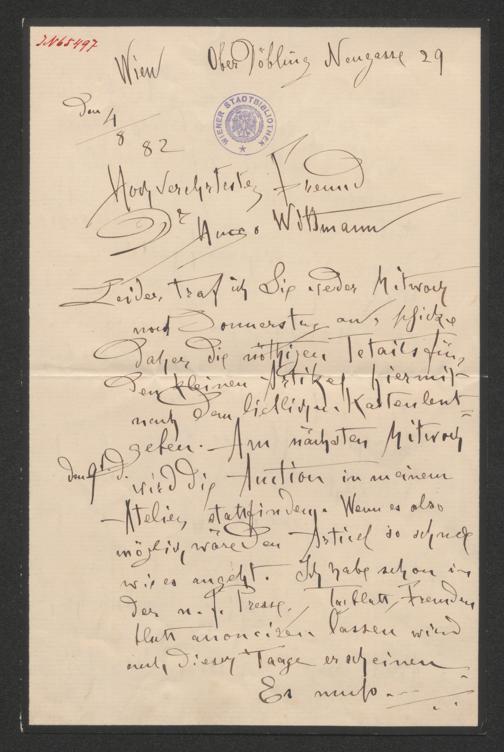 JN65497
Wien Ober Döbling Neugasse 29
Den 4/8 82
WIENER STADTBIBLIOTHEK
Hochverehrtester Freund
Dr Hugo Wittmann
Leider traf ich Sie weder Mitwoch
noch Donnerstag an, schicke
Daher die nöthigen Details für
den kleinen Artikel hiermit
nach dem lieblichen Kastenleut=
geben. – Am nächsten Mitwoch
den 9. d.
wird die Auction in meinem
Atelier stattfinden. Wenn es also
möglich wäre Den Articel so schnell
wie es angeht. Ich habe schon in
der n. f. Presse, Tagblatt, Fremden
blatt anoncizen lassen wird
auch dieser Taage erscheinen
Es muß. –